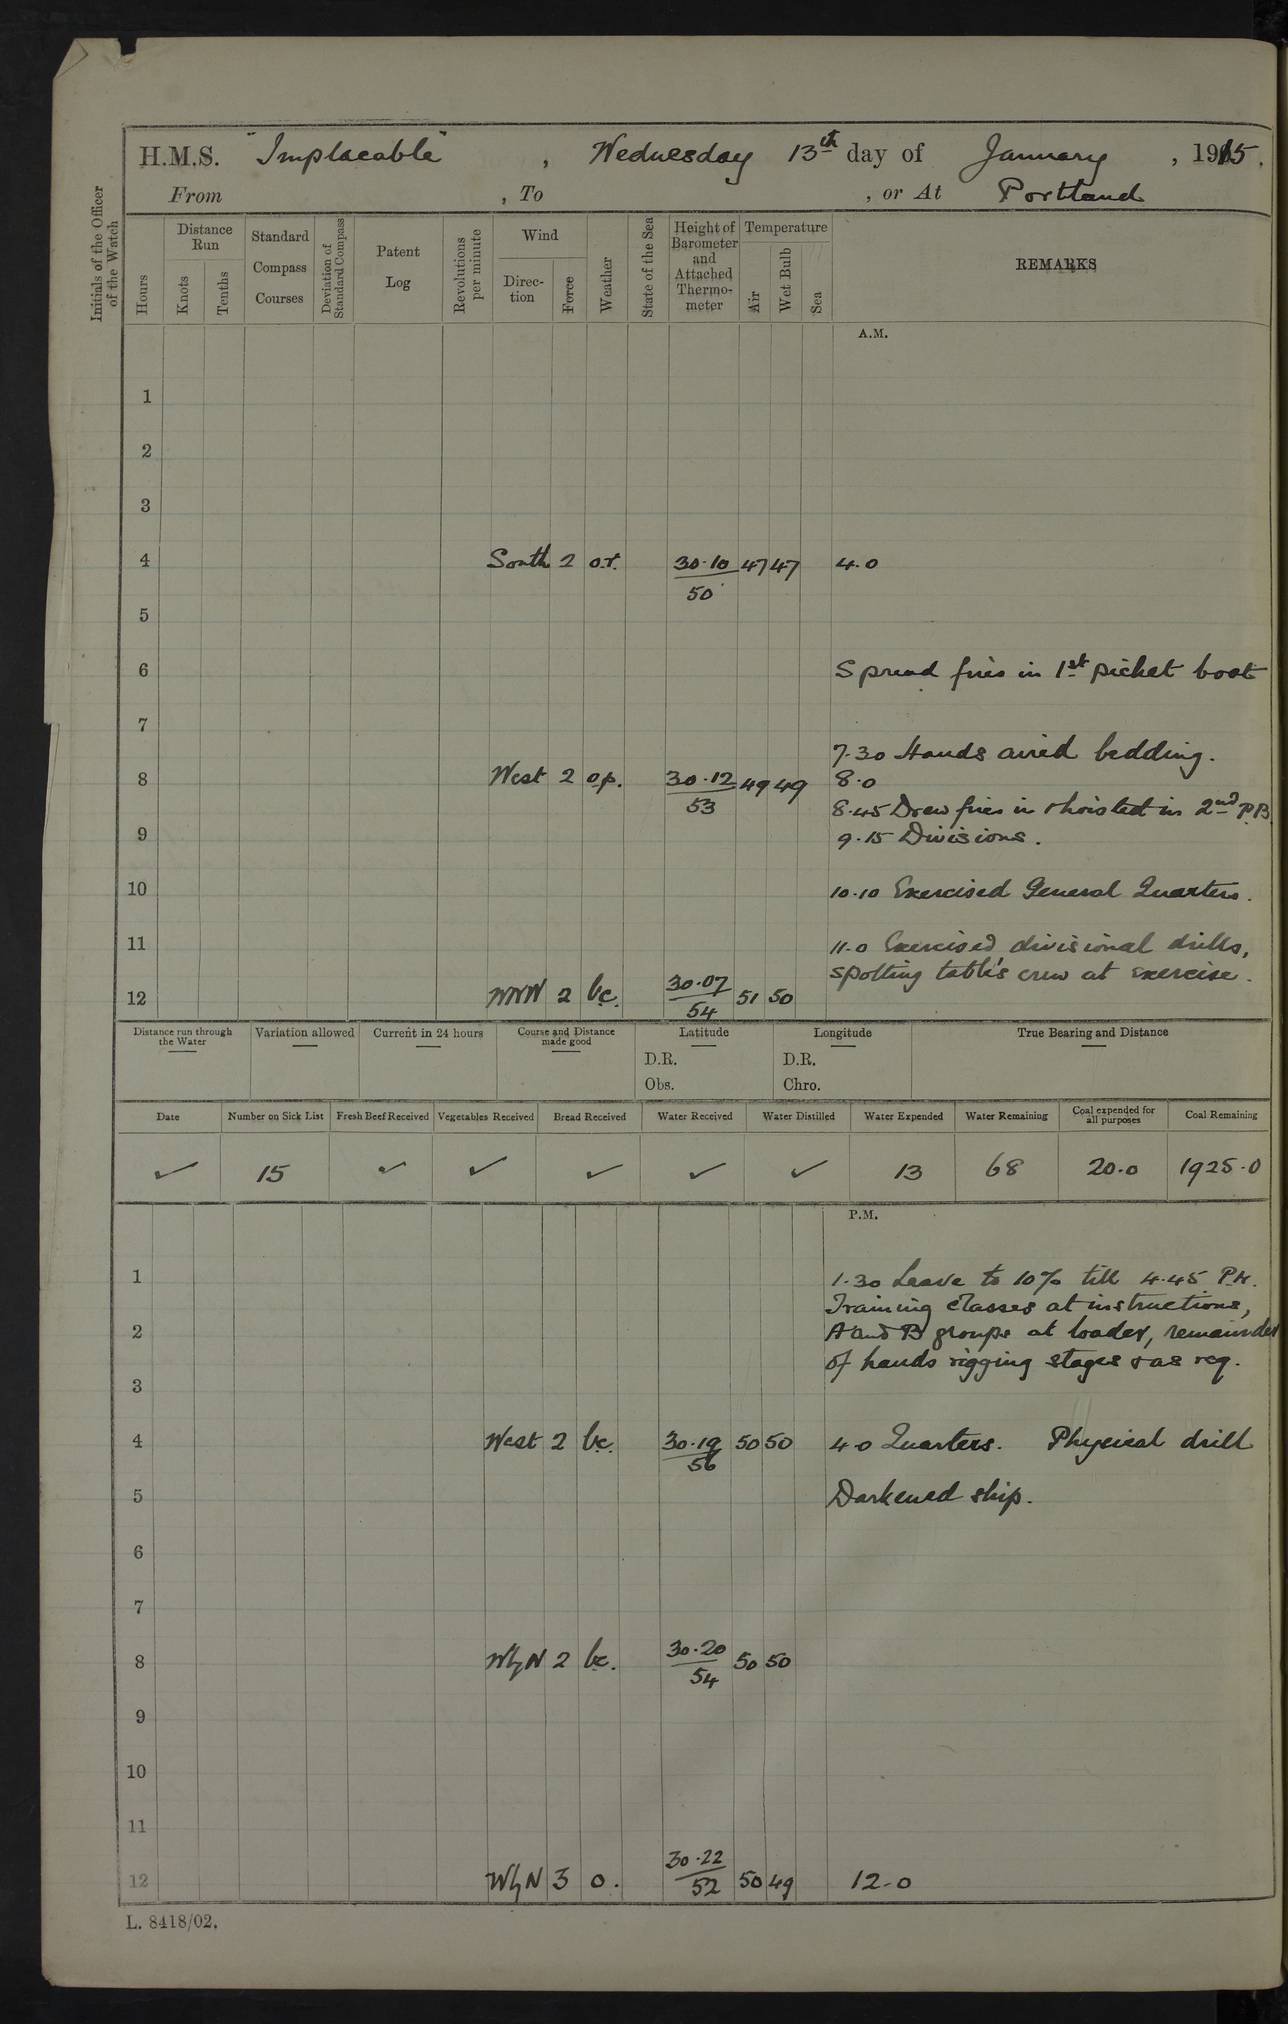 H.M.S. "Implacable", Wednesday 13th day of January, 1915.
From , To , or At Portland
Initials of the Officer of the Watch
Hours
Distance Run
Knots
Tenths
Standard Compass Courses
Deviation of Standard Compass
Patent Log
Revolutions per minute
Wind
Direction
Force
Weather
State of the Sea
Height of Barometer and Attached Thermometer
Temperature
Air
Wet Bulb
Sea
REMARKS
A.M.
1
2
3
4 South 2 o.r. 30.10 47 47 4.0
50
5
6 Spread fires in 1st picket boat
7
7.30 Hands aired bedding.
8 West 2 o.p. 30.12 49 49 8.0
53
8.45 Drew fires in & hoisted in 2nd P.B.
9 9.15 Divisions.
10 10.10 Exercised General Quarters.
11 11.0 Exercised divisional drills,
spotting table's crew at exercise.
12 WNW 2 b.c. 30.07 51 50
54
Distance run through the Water
Variation allowed
Current in 24 hours
Course and Distance made good
Latitude
D.R.
Obs.
Longitude
D.R.
Chro.
True Bearing and Distance
Date Number on Sick List Fresh Beef Received Vegetables Received Bread Received Water Received Water Distilled Water Expended Water Remaining Coal expended for all purposes Coal Remaining
✓ 15 ✓ ✓ ✓ ✓ ✓ 13 68 20.0 1925.0
P.M.
1 1.30 Leave to 10% till 4.45 P.M.
Training classes at instructions,
2 A and B groups at loader, remainder
of hands rigging stages & as req.
3
4 West 2 b.c. 30.19 50 50 4.0 Quarters. Physical drill
56
5 Darkened ship.
6
7
8 WbyN 2 b.c. 30.20 50 50
54
9
10
11
12 WbyN 3 o. 30.22 50 49 12.0
52
L. 8418/02.